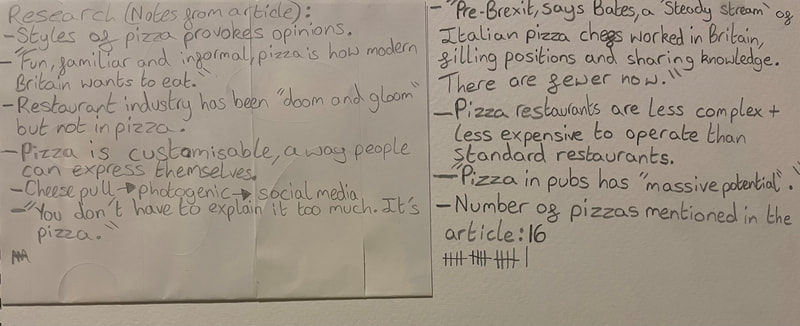 Research (Notes from article):
- Styles of pizza provokes opinions.
- "Fun, familiar and informal, pizza is how modern
Britain wants to eat."
- Restaurant industry has been "doom and gloom"
but not in pizza.
- Pizza is customisable, a way people
can express themselves.
- Cheese pull → photogenic → social media
- "You don't have to explain it too much. It's
pizza."
- "Pre-Brexit, says Bates, a 'steady stream' of
Italian pizza chefs worked in Britain,
filling positions and sharing knowledge.
There are fewer now."
- Pizza restaurants are less complex +
less expensive to operate than
standard restaurants.
- "Pizza in pubs has "massive potential"."
- Number of pizzas mentioned in the
article: 16